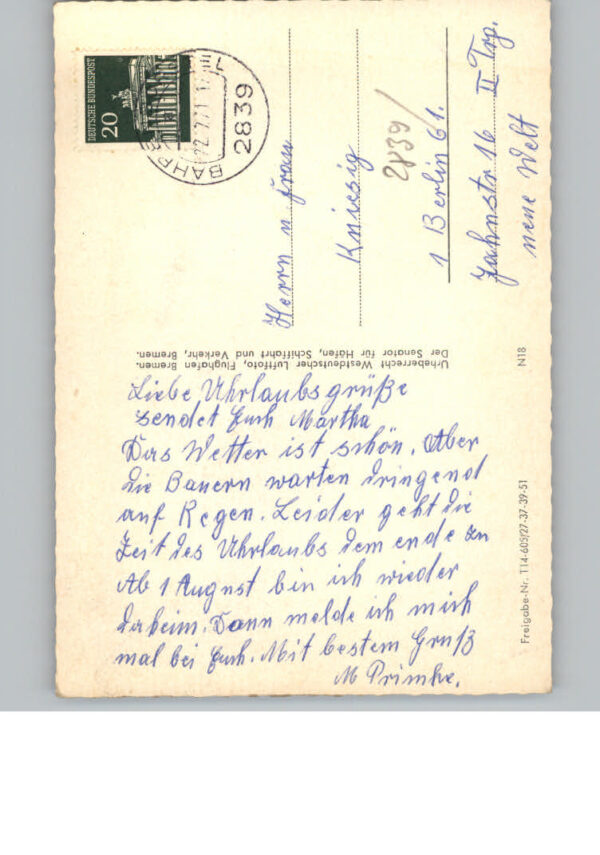 Liebe Uhrlaubsgrüße
sendet Euch Martha
Das Wetter ist schön. Aber
die Bauern warten dringend
auf Regen. Leider geht die
Zeit des Uhrlaubs dem ende zu
Ab 1 August bin ich wieder
daheim. Dann melde ich mich
mal bei Euch. Mit bestem Gruß
M Primke.
DEUTSCHE BUNDESPOST
20
2839
Herrn u Frau
Kniesig
2839/
1 Berlin 61.
Jahnstr 16 II Trp.
neue Welt
Urheberrecht Westdeutscher Luftfoto, Flughafen Bremen.
Der Senator für Häfen, Schiffahrt und Verkehr, Bremen.
N18
Freigabe-Nr. T14-605/27-37-39-51